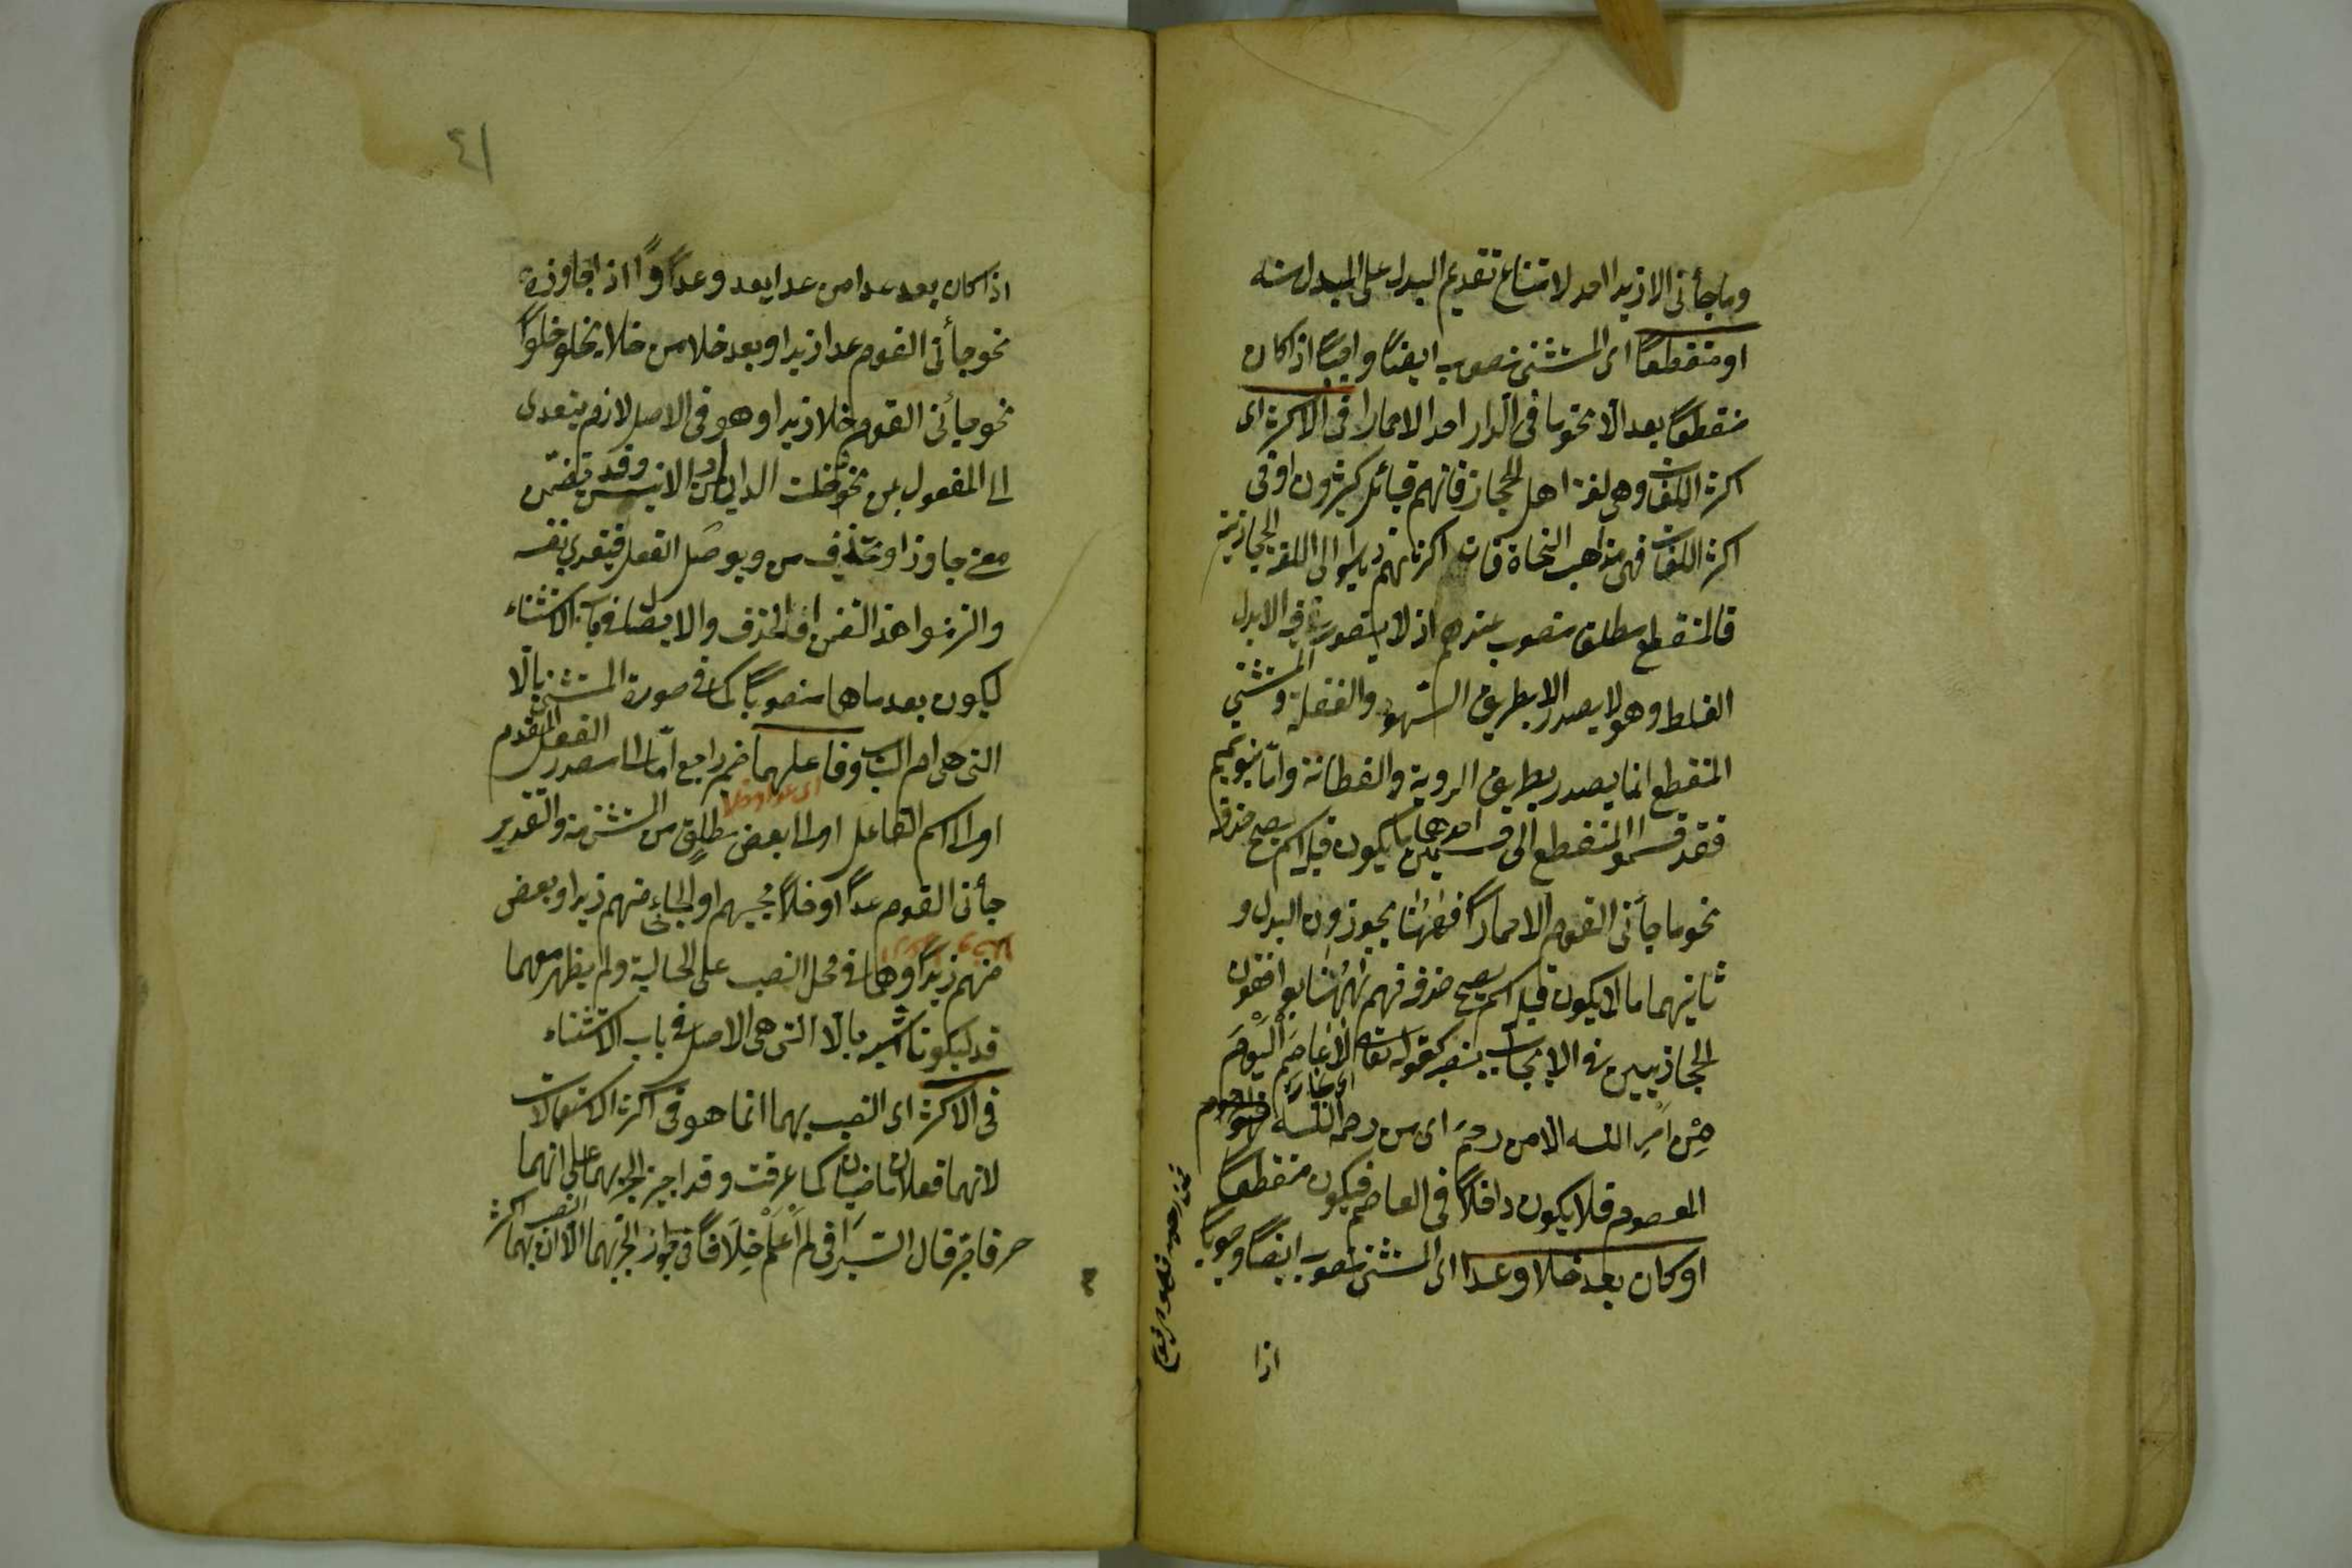 وما جأنى الا زيدا احد لامتناع تقديم البدل على المبدل منه
او منقطعاً اى المستثنى منصوب ايضاً واجباً اذا كان
منقطعاً بعد الّا نحو ما فى الدار احد الا حمارا فى الاكثر اى
اكثر اللغات وهى لغة اهل الحجاز فانهم قبائل كثيرون او فى
اكثر مذاهب النحاة فان اكثرهم ذهبوا الى اللغة الحجازية
فالمنقطع مطلقا منصوب عندهم اذ لا يتصور فيه الا بدل
الغلط وهو لا يصدر الا بطريق السهو والغفلة والمستثنى
المنقطع انما يصدر بطريق الروية والفطانة وامّا بنو تميم
فقد قسموا المنقطع الى قسمين احدهما ما يكون قبله اسم يصح حذفه
نحو ما جأنى القوم الا حماراً فههنا يجوزون البدل و
ثانيهما ما لا يكون قبله اسم يصح حذفه فهم ههنا يوافقون
الحجازيين فى الايجاب نصبه كقوله تعالى لَا عَاصِمَ الْيَوْمَ
مِنْ اَمْرِ الله الا من رحمَ اى من رحمه الله
المعصوم فلا يكون داخلاً فى العاصم فيكون منقطعاً
او كان بعد خلا وعدا اى المستثنى منصوب ايضاً وجوباً
اذا
٤١
اذا كان بعد عدا من عدا يعد وعدواً اذا جاوزه
نحو جأنى القوم عدا زيدا وبعد خلا من خلا يخلو خلوّاً
نحو جأنى القوم خلا زيدا وهو فى الاصل لازم يتعدى
الى المفعول بمن نحو خلت الدار من الانيس وقد تضمّن
معنى جاوز او يحذف من ويوصل الفعل فيتعدى بنفسه
والتزموا هذا التضمن او الحذف والايصال فى باب الاستثناء
ليكون بعدهما منصوباً كما فى صورة المستثنى بالّا
التى هى ام الباب وفاعلهما ضمير راجع امّا الى مصدر الفعل المقدم
او الى اسم الفاعل او الى بعض مطلق من المستثنى منه والتقدير
اى عدا وخلا
جأنى القوم عداً او خلاً مجيئهم او الجائى منهم زيدا وبعض
منهم زيداً وهما فى محل النصب على الحالية ولم يظهر معهما
قد ليكونا اشبه بالّا التى هى الاصل فى باب الاستثناء
فى الاكثر اى النصب بهما انما هو فى اكثر الاستعمالات
لانهما فعلان ماضيان كما عرفت وقد اجيز الجر بهما على انهما
حرفا جرّ قال السيرافى لم اَعْلَمْ خِلَافاً فى جواز الجر بهما الّا ان النصب بهما اكثر